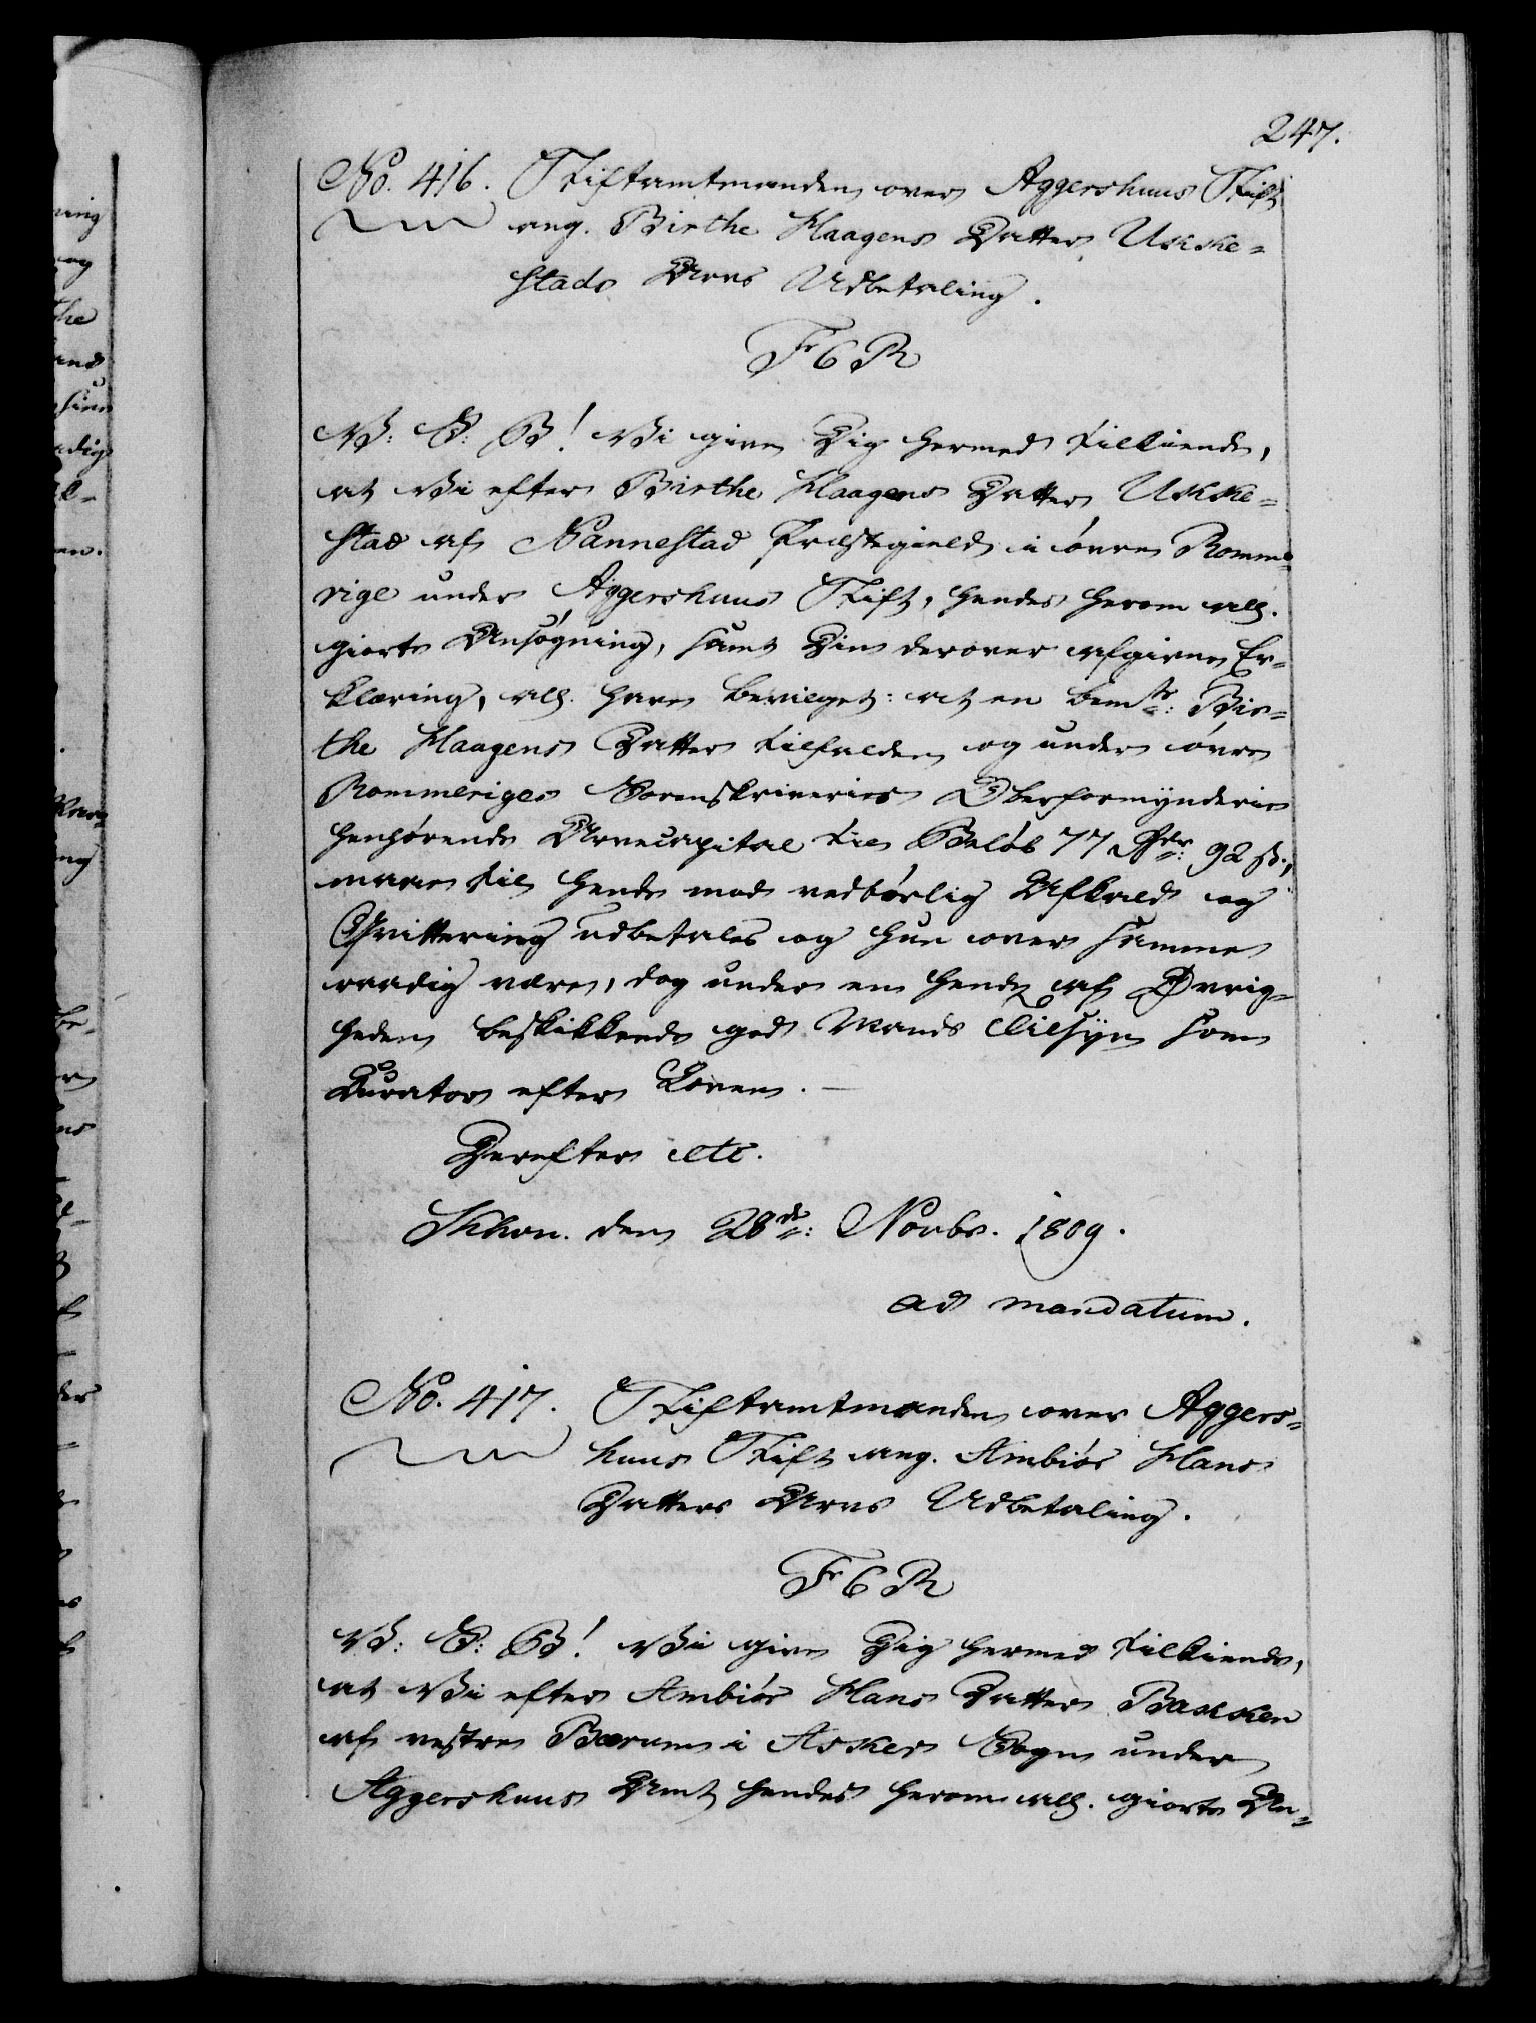 247.
No. 416. Stiftamtmanden over Aggershuus Stift
ang. Birthe Haagens Datter Ukke-
stads Arvs Udbetaling.
F 6 R
V: S: G! Vi give Dig hermed tilkiende,
at Vi efter Birthe Haagens Datter Ukke-
stad af Nannestad Præstegield i øvre Romme-
rige under Aggershuus Stift, hendes herom all.
giorte Ansøgning, samt Din derover afgivne Er-
klæring, all. have bevilget: at en bemte: Bir-
the Haagens Datter tilfalden og under øvre
Rommeriges Sorenskriveries Overformynderie
henhørende Arvecapital til Beløb 77 Rdr: 92 s.,
maae til hende mod vedbørlig Afkald og
Qvittering udbetales og hun over samme
raadig være, dog under en hende af Øvrig-
heden beskikkende god Mands Tilsyn som
Curator efter Loven. —
Derefter etc.
Khvn. den 28de: Novbr. 1809.
ad mandatum.
No. 417. Stiftamtmanden over Aggers-
huus Stift ang. Ambiør Hans
Datters Arvs Udbetaling.
F 6 R
V: S: G! Vi give Dig hermed tilkiende,
at Vi efter Ambiør Hans Datter Bakken
af vestre Bærum i Asker Sogn under
Aggershuus Amt hendes herom all. giorte An-